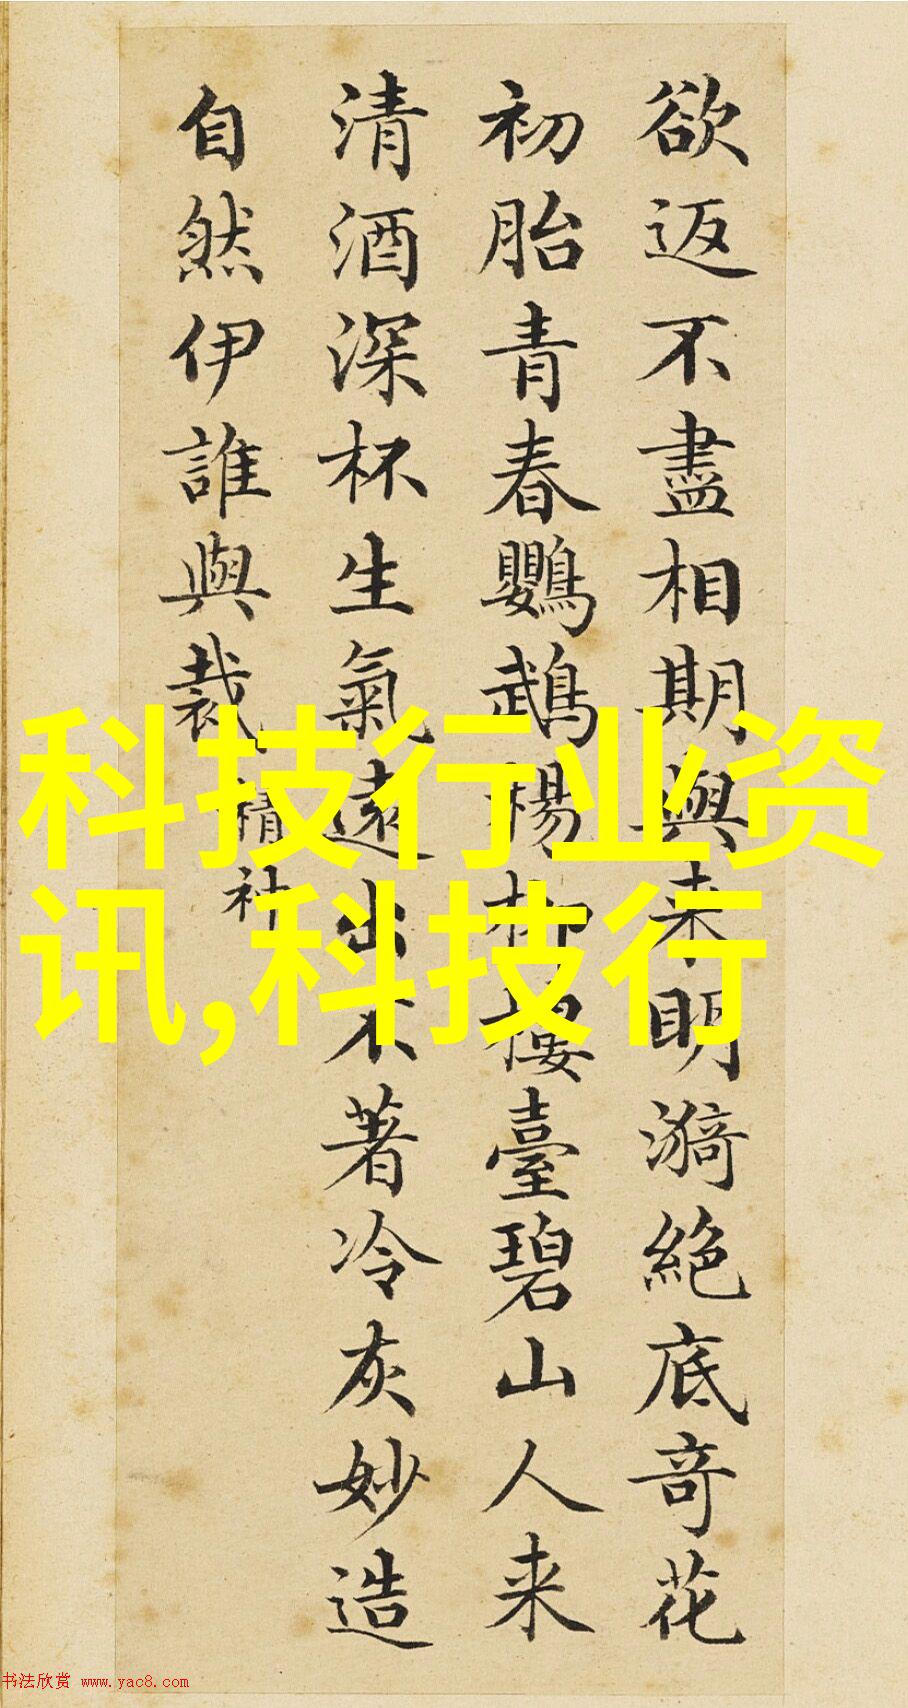 欲返不盡相期與来眀漪絶底竒花
初胎青春鸚鵡楊柳樓臺碧山人来
清酒深杯生氣遠出不著冷灰妙造
自然伊誰與裁
精神
科技行业资
讯,科技行
书法欣赏 www.yac8.com